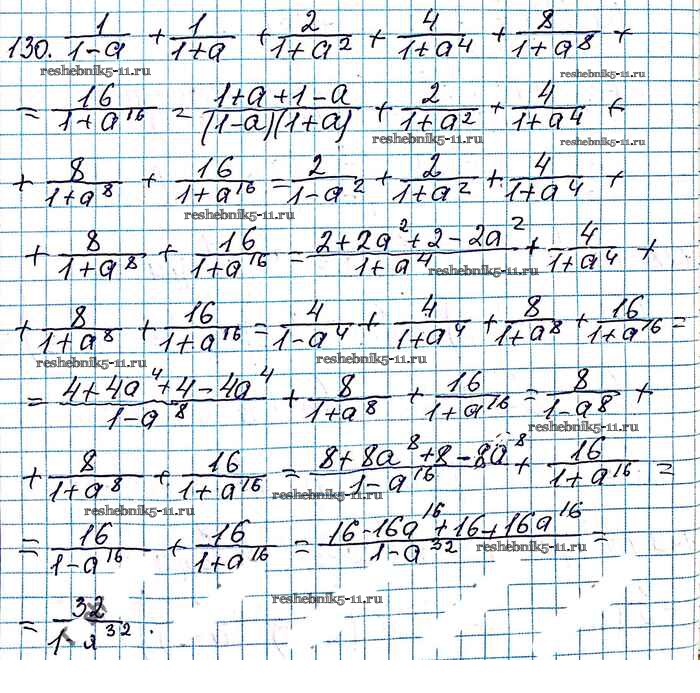 130. 1/(1-a) + 1/(1+a) + 2/(1+a²) + 4/(1+a⁴) + 8/(1+a⁸) +
reshebnik5-11.ru reshebnik5-11.ru reshebnik5-11.ru
= 16/(1+a¹⁶) = (1+a+1-a)/((1-a)(1+a)) + 2/(1+a²) + 4/(1+a⁴) +
reshebnik5-11.ru reshebnik5-11.ru
+ 8/(1+a⁸) + 16/(1+a¹⁶) = 2/(1-a²) + 2/(1+a²) + 4/(1+a⁴) +
reshebnik5-11.ru
+ 8/(1+a⁸) + 16/(1+a¹⁶) = (2+2a²+2-2a²)/(1+a⁴) + 4/(1+a⁴) +
reshebnik5-11.ru
+ 8/(1+a⁸) + 16/(1+a¹⁶) = 4/(1-a⁴) + 4/(1+a⁴) + 8/(1+a⁸) + 16/(1+a¹⁶) =
reshebnik5-11.ru reshebnik5-11.ru
= (4+4a⁴+4-4a⁴)/(1-a⁸) + 8/(1+a⁸) + 16/(1+a¹⁶) = 8/(1-a⁸) +
reshebnik5-11.ru
+ 8/(1+a⁸) + 16/(1+a¹⁶) = (8+8a⁸+8-8a⁸)/(1-a¹⁶) + 16/(1+a¹⁶) =
reshebnik5-11.ru reshebnik5-11.ru
= 16/(1-a¹⁶) + 16/(1+a¹⁶) = (16-16a¹⁶+16+16a¹⁶)/(1-a³²) =
reshebnik5-11.ru
reshebnik5-11.ru
= 32/(1-a³²).